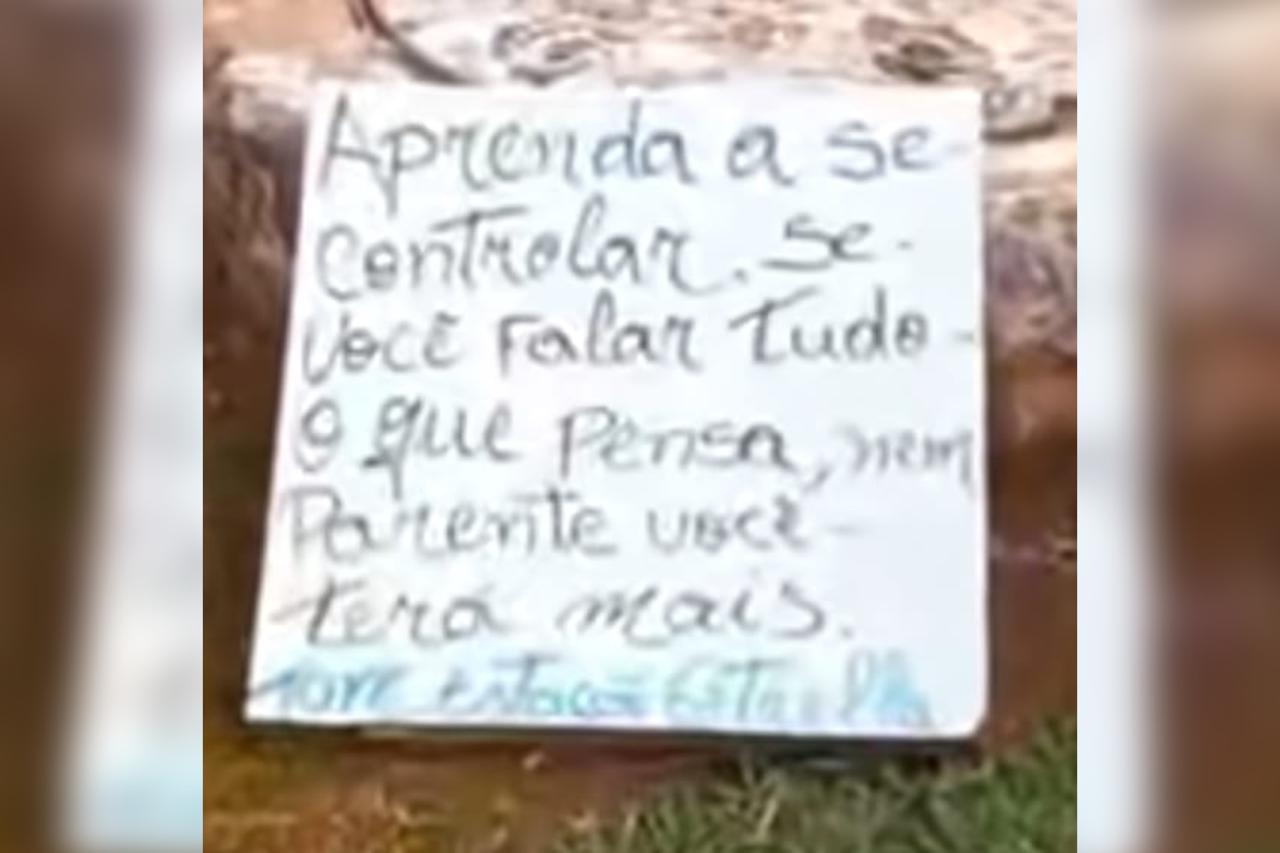 Aprenda a se
Controlar. Se.
Você Falar Tudo
o que Pensa, nem
Parente você
terá mais.